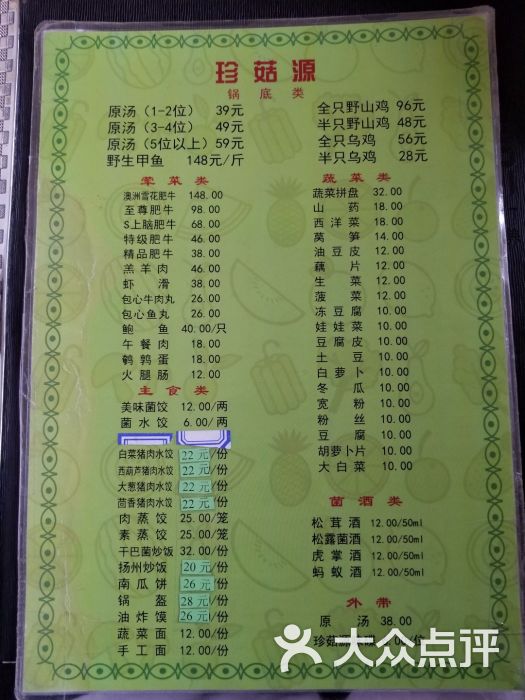 珍菇源
锅底类
原汤（1-2位） 39元
原汤（3-4位） 49元
原汤（5位以上）59元
野生甲鱼 148元/斤
全只野山鸡 96元
半只野山鸡 48元
全只乌鸡 56元
半只乌鸡 28元
荤菜类
澳洲雪花肥牛 148.00
至尊肥牛 98.00
S上脑肥牛 68.00
特级肥牛 46.00
精品肥牛 38.00
羔羊肉 46.00
虾滑 38.00
包心牛肉丸 26.00
包心鱼丸 26.00
鲍鱼 40.00/只
午餐肉 18.00
鹌鹑蛋 18.00
火腿肠 12.00
主食类
美味菌饺 12.00/两
菌水饺 6.00/两
白菜猪肉水饺 22元/份
西葫芦猪肉水饺 22元/份
大葱猪肉水饺 22元/份
茴香猪肉水饺 22元/份
肉蒸饺 25.00/笼
素蒸饺 25.00/笼
干巴菌炒饭 32.00/份
扬州炒饭 20元/份
南瓜饼 26元/份
锅盔 28元/份
油炸馍 26元/份
蔬菜面 12.00/份
手工面 12.00/份
蔬菜类
蔬菜拼盘 32.00
山药 18.00
西洋菜 18.00
莴笋 14.00
油豆皮 12.00
藕片 12.00
生菜 12.00
菠菜 12.00
冻豆腐 10.00
娃娃菜 10.00
豆腐皮 10.00
土豆 10.00
白萝卜 10.00
冬瓜 10.00
宽粉 10.00
粉丝 10.00
豆腐 10.00
胡萝卜片 10.00
大白菜 10.00
菌酒类
松茸酒 12.00/50ml
松露菌酒 12.00/50ml
虎掌酒 12.00/50ml
蚂蚁酒 12.00/50ml
外带
原汤 38.00
珍菇源 00/位
大众点评